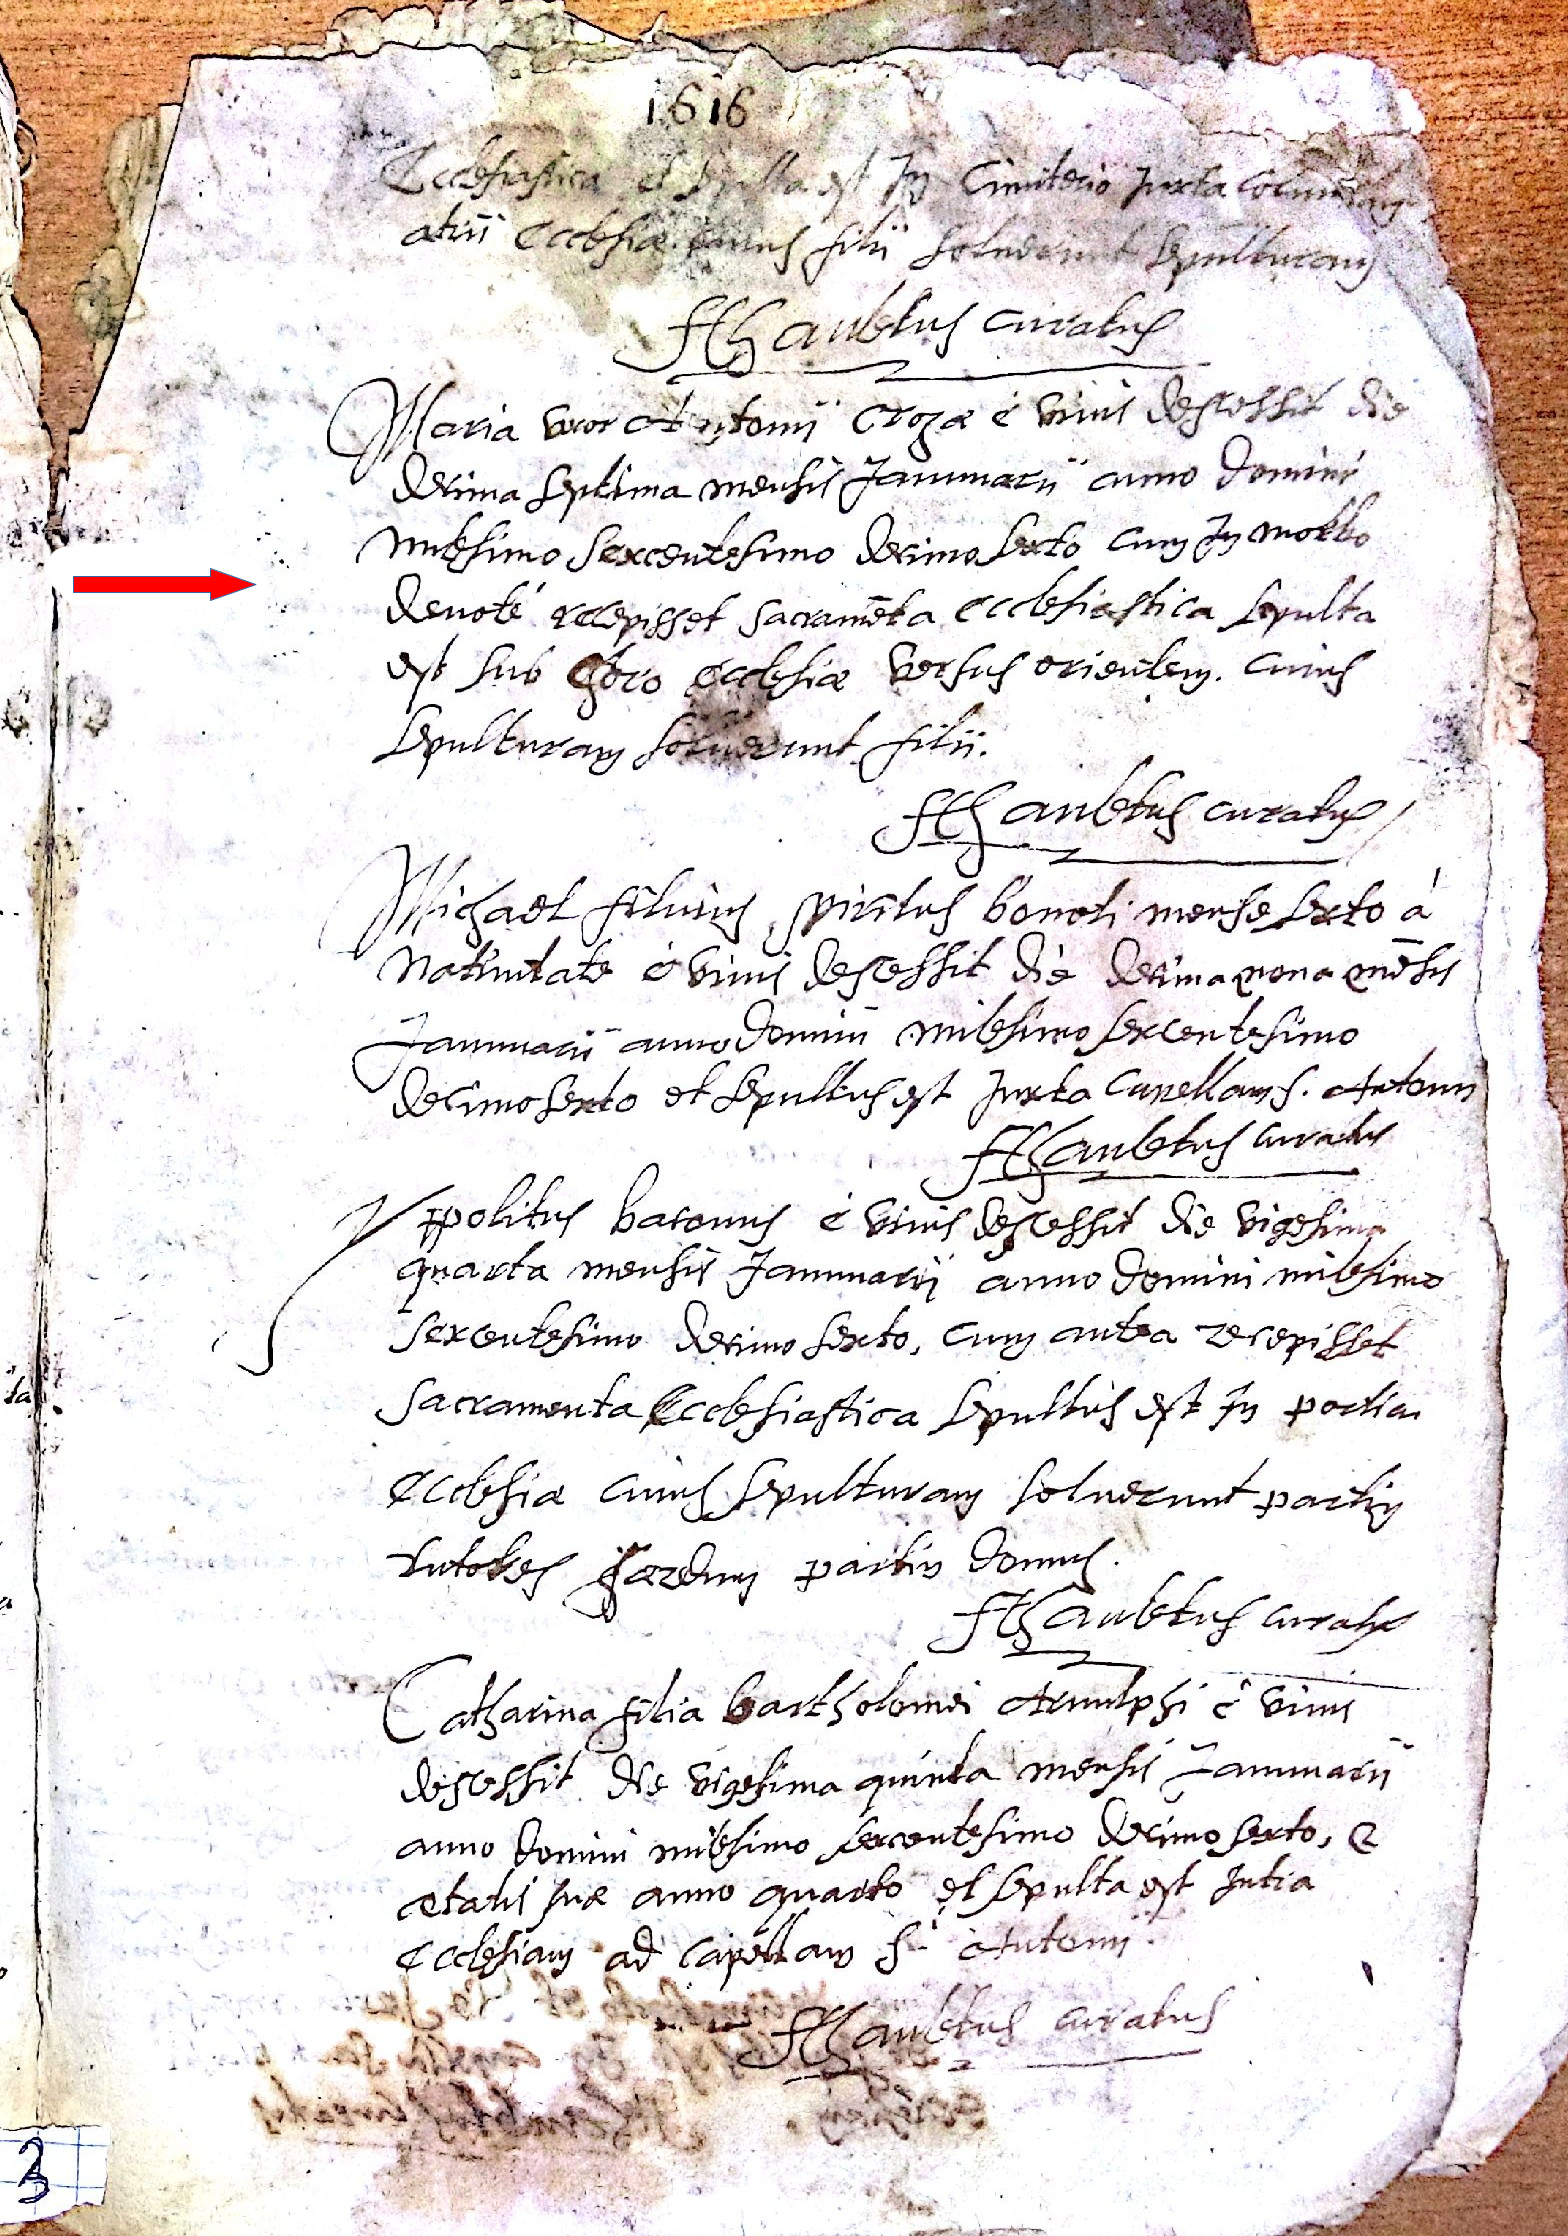 1616
Ecclesiastica et sepulta est In Cimiterio Juxta
atrii Ecclesiæ cuius filii soluerunt sepulturam
curatus
Maria uxor Antonii Crozæ é viuis descessit die
decima septima mensis Januarii anno Domini
milesimo sexcentesimo decimo sexto cum In morbo
deuoté recepisset sacramēta ecclesiastica sepulta
est sub choro ecclesiæ versus orientem. cuius
sepulturam soluerunt filii.
curatus
Michael filius spiritus bonoti mense sexto á
natiuitate é viuis descessit die decima nona mēsis
Januarii anno Domini milesimo sexcentesimo
decimo sexto et sepultus est Juxta Capellam S. Antonii
curatus
Yppolitus baronus é viuis descessit die vigesima
quarta mensis Januarii anno Domini milesimo
sexcentesimo decimo sexto, cum antea recepisset
sacramenta Ecclesiastica sepultus est In
Ecclesiæ cuius sepulturam soluerunt partim
tutores hæredum partim domus.
curatus
Catharina filia bartholomei Arnulphi é viuis
descessit die vigesima quinta mensis Januarii
anno Domini milesimo sexcentesimo decimo sexto, &
ætatis suæ anno quarto et sepulta est Intra
Ecclesiam ad Capellam Sti Antonii.
curatus
3